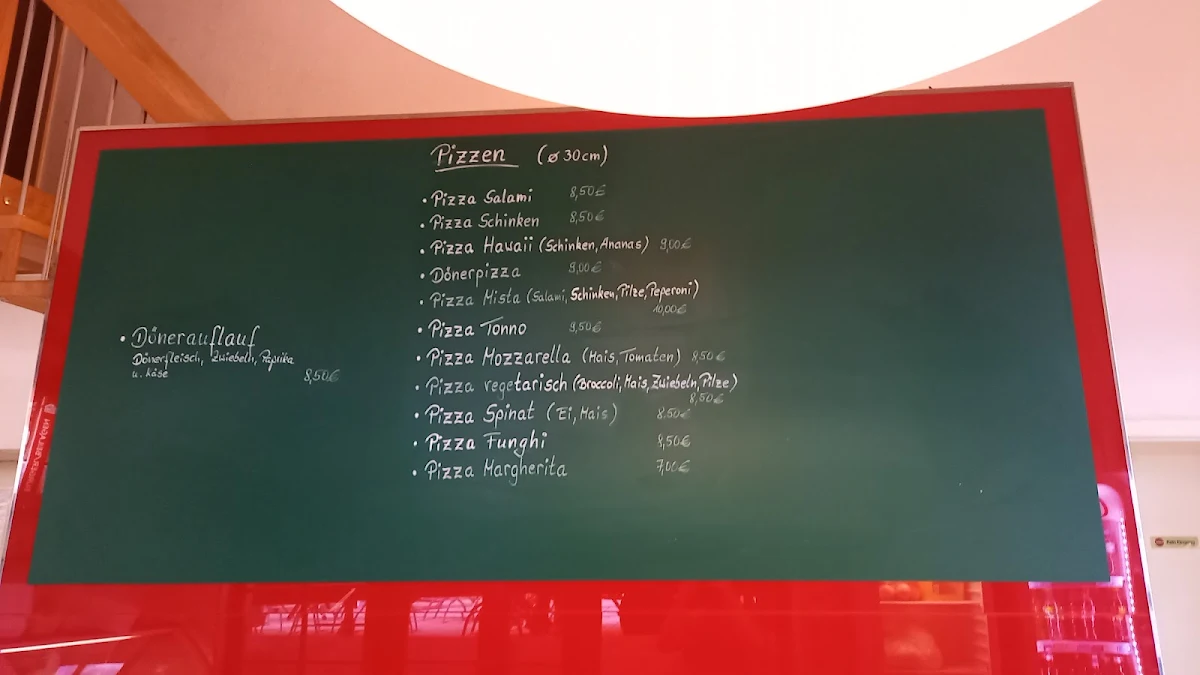 Pizzen (ø 30cm)
• Pizza Salami 8,50€
• Pizza Schinken 8,50€
• Pizza Hawaii (Schinken, Ananas) 9,00€
• Dönerpizza 9,00€
• Pizza Mista (Salami, Schinken, Pilze, Peperoni)
10,00€
• Pizza Tonno 9,50€
• Pizza Mozzarella (Mais, Tomaten) 8,50€
• Pizza vegetarisch (Broccoli, Mais, Zwiebeln, Pilze)
8,50€
• Pizza Spinat (Ei, Mais) 8,50€
• Pizza Funghi 8,50€
• Pizza Margherita 7,00€
• Dönerauflauf
Dönerfleisch, Zwiebeln, Paprika
u. Käse 8,50€